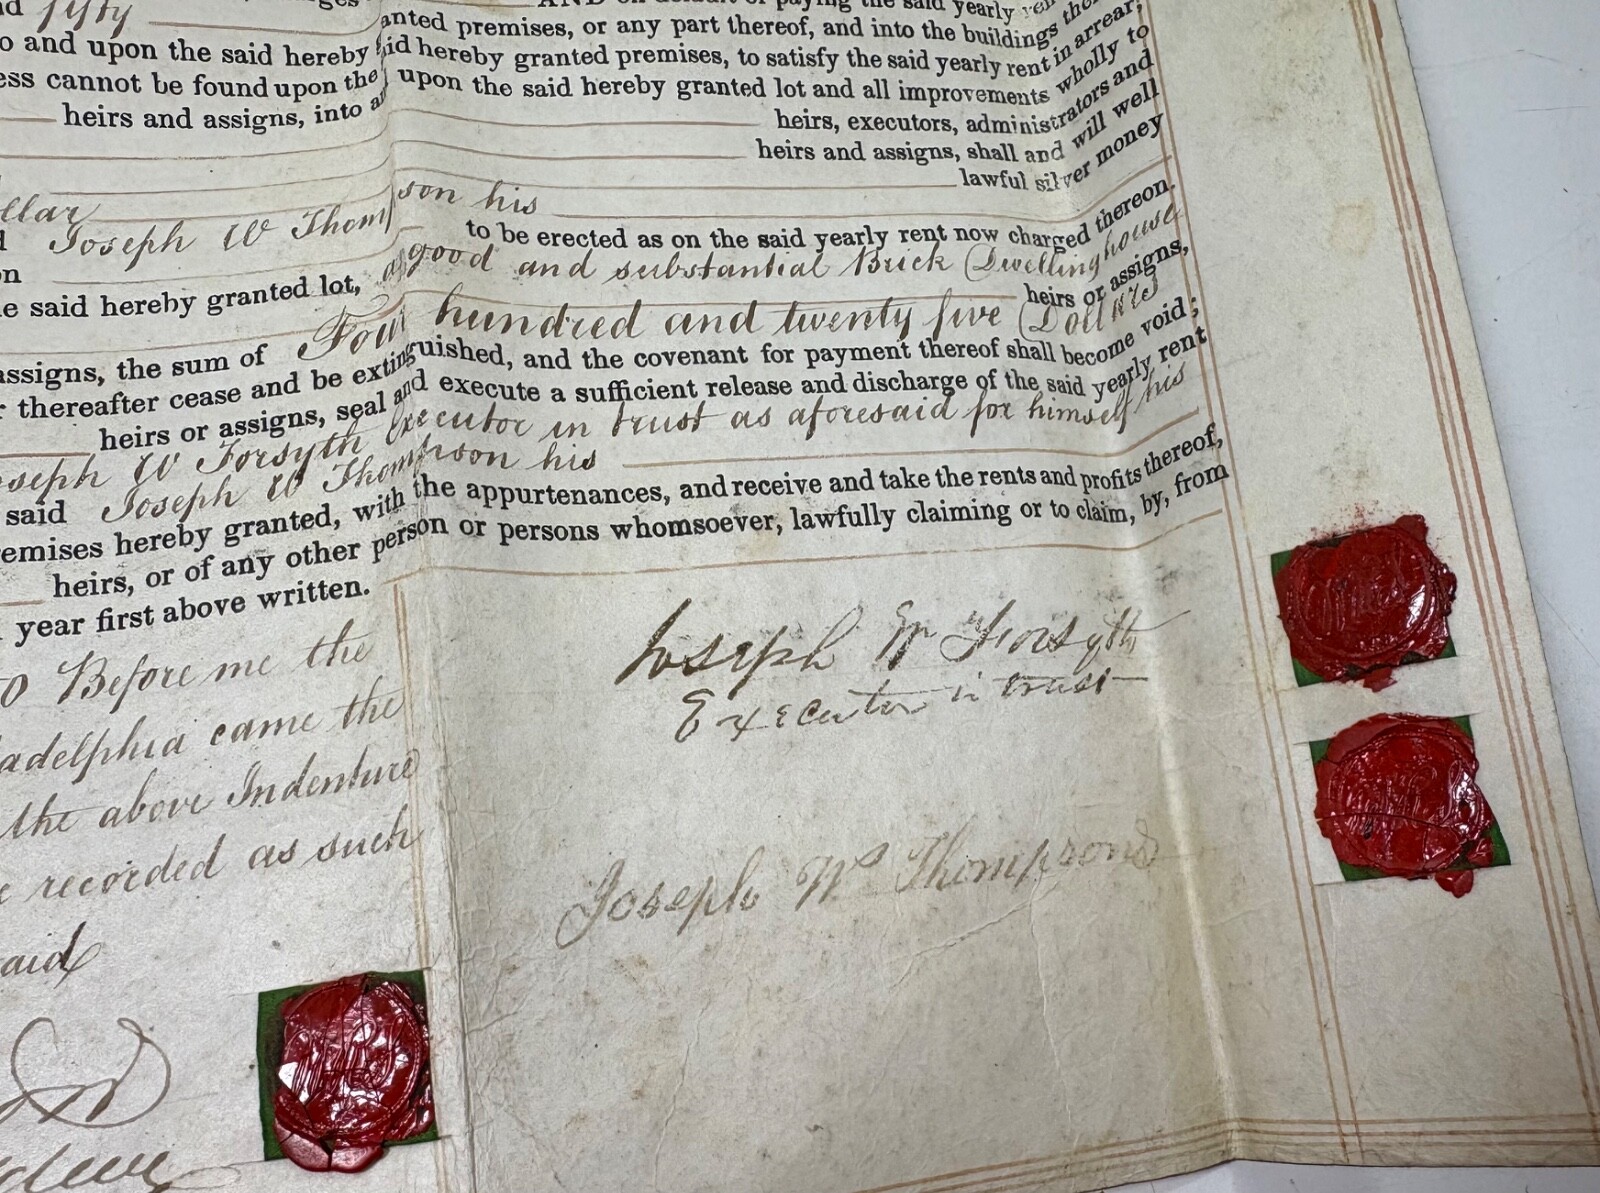 fifty
AND on default of paying the said yearly
o and upon the said hereby granted premises, or any part thereof, and into the buildings
ess cannot be found upon the said hereby granted premises, to satisfy the said yearly rent in arrear;
heirs and assigns, into and upon the said hereby granted lot and all improvements wholly to
heirs, executors, administrators and
heirs and assigns, shall and will well
lawful silver money
ollar
Joseph W Thompson his
on
to be erected as on the said yearly rent now charged thereon.
e said hereby granted lot, a good and substantial Brick Dwellinghouse
heirs or assigns,
assigns, the sum of Four hundred and twenty five Dollars
r thereafter cease and be extinguished, and the covenant for payment thereof shall become void;
heirs or assigns, seal and execute a sufficient release and discharge of the said yearly rent
oseph W Forsyth Executor in trust as aforesaid for himself his
said Joseph W Thompson his
remises hereby granted, with the appurtenances, and receive and take the rents and profits thereof,
heirs, or of any other person or persons whomsoever, lawfully claiming or to claim, by, from
year first above written.
Before me the
adelphia came the
the above Indenture
e recorded as such
aid
Joseph W Forsyth
Executor in trust
Joseph Wm Thompson